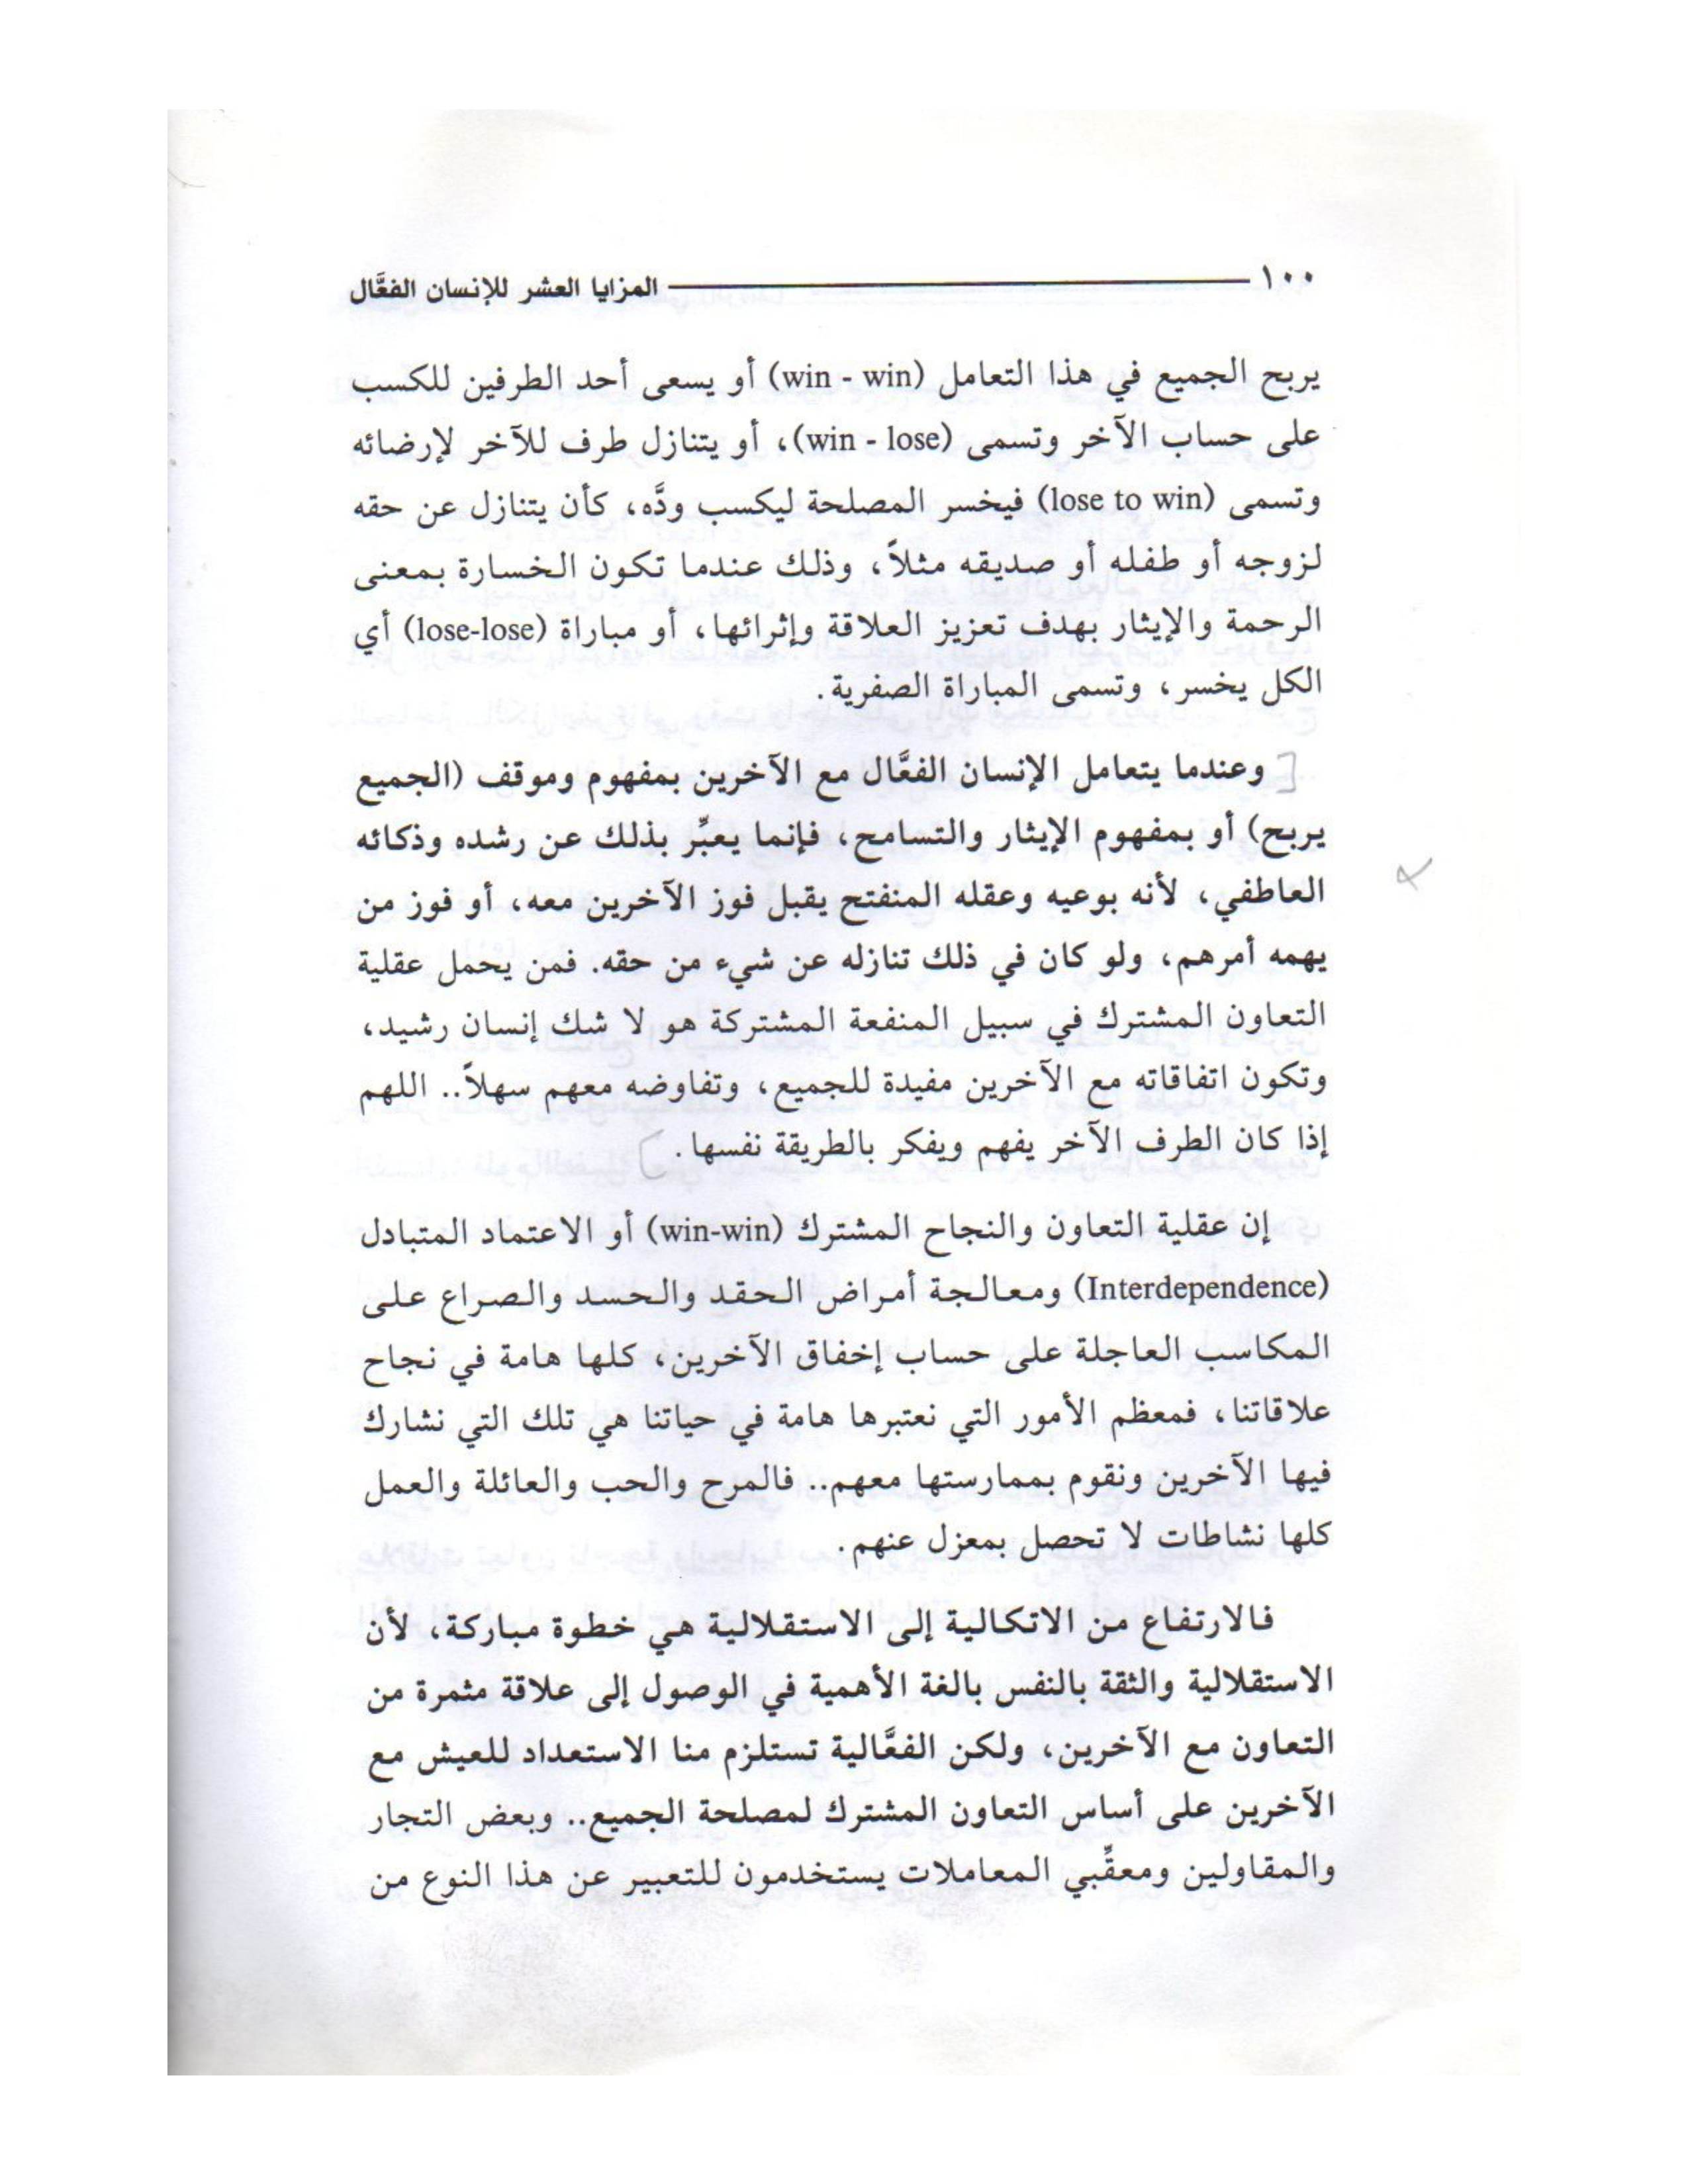 ١٠٠ المزايا العشر للإنسان الفعَّال
يربح الجميع في هذا التعامل (win - win) أو يسعى أحد الطرفين للكسب
على حساب الآخر وتسمى (win - lose)، أو يتنازل طرف للآخر لإرضائه
وتسمى (lose to win) فيخسر المصلحة ليكسب ودَّه، كأن يتنازل عن حقه
لزوجه أو طفله أو صديقه مثلاً، وذلك عندما تكون الخسارة بمعنى
الرحمة والإيثار بهدف تعزيز العلاقة وإثرائها، أو مباراة (lose-lose) أي
الكل يخسر، وتسمى المباراة الصفرية.
[وعندما يتعامل الإنسان الفعَّال مع الآخرين بمفهوم وموقف (الجميع
يربح) أو بمفهوم الإيثار والتسامح، فإنما يعبِّر بذلك عن رشده وذكائه
العاطفي، لأنه بوعيه وعقله المنفتح يقبل فوز الآخرين معه، أو فوز من
يهمه أمرهم، ولو كان في ذلك تنازله عن شيء من حقه. فمن يحمل عقلية
التعاون المشترك في سبيل المنفعة المشتركة هو لا شك إنسان رشيد،
وتكون اتفاقاته مع الآخرين مفيدة للجميع، وتفاوضه معهم سهلاً.. اللهم
إذا كان الطرف الآخر يفهم ويفكر بالطريقة نفسها.]
إن عقلية التعاون والنجاح المشترك (win-win) أو الاعتماد المتبادل
(Interdependence) ومعالجة أمراض الحقد والحسد والصراع على
المكاسب العاجلة على حساب إخفاق الآخرين، كلها هامة في نجاح
علاقاتنا، فمعظم الأمور التي نعتبرها هامة في حياتنا هي تلك التي نشارك
فيها الآخرين ونقوم بممارستها معهم.. فالمرح والحب والعائلة والعمل
كلها نشاطات لا تحصل بمعزل عنهم.
فالارتفاع من الاتكالية إلى الاستقلالية هي خطوة مباركة، لأن
الاستقلالية والثقة بالنفس بالغة الأهمية في الوصول إلى علاقة مثمرة من
التعاون مع الآخرين، ولكن الفعَّالية تستلزم منا الاستعداد للعيش مع
الآخرين على أساس التعاون المشترك لمصلحة الجميع.. وبعض التجار
والمقاولين ومعقِّبي المعاملات يستخدمون للتعبير عن هذا النوع من